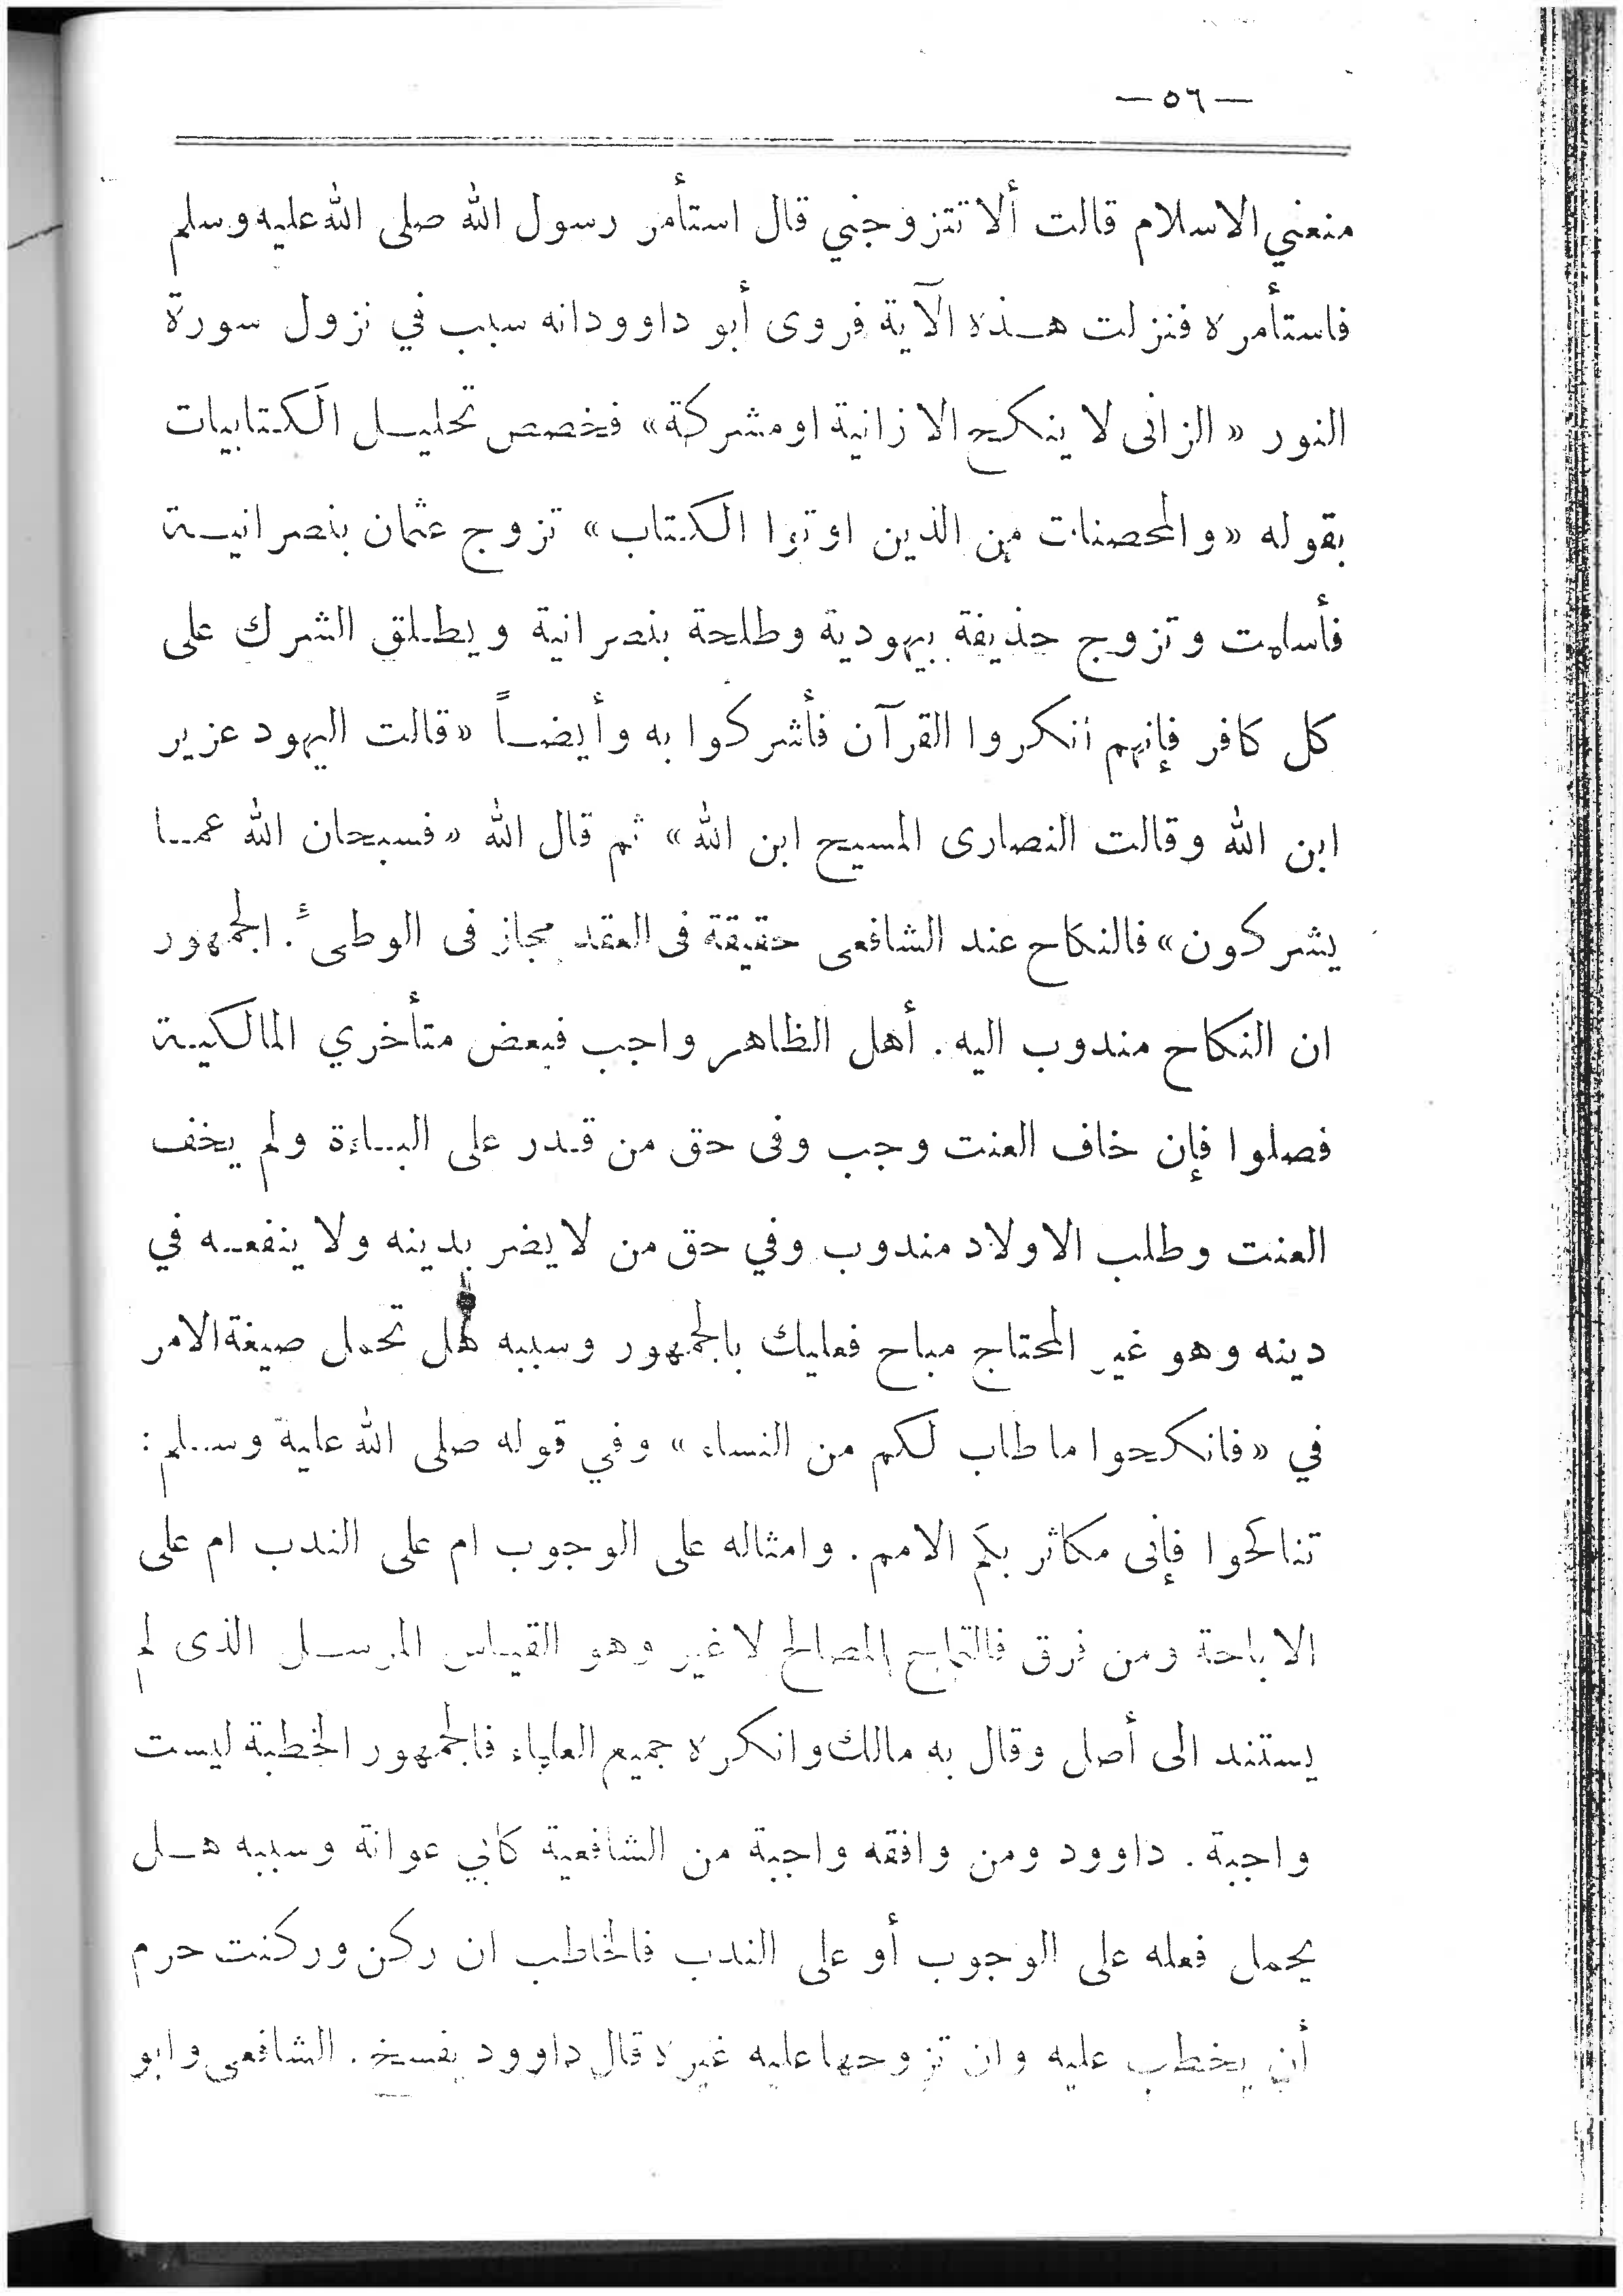 —٥٦—
منعني الاسلام قالت ألا تتزوجني قال استأمر رسول الله صلى الله عليه وسلم
فاستأمره فنزلت هذه الآية فروى أبو داوود انه سبب في نزول سورة
النور «الزانى لا ينكح الا زانية او مشركة» فخصص تحليل الكتابيات
بقوله «والمحصنات من الذين اوتوا الكتاب» تزوج عثمان بنصرانية
فأسلمت وتزوج حذيفة بيهودية وطلحة بنصرانية ويطلق الشرك على
كل كافر فإنهم أنكروا القرآن فأشركوا به وأيضاً «قالت اليهود عزير
ابن الله وقالت النصارى المسيح ابن الله» ثم قال الله «فسبحان الله عما
يشركون» فالنكاح عند الشافعى حقيقة فى العقد مجاز فى الوطىء. الجمهور
ان النكاح مندوب اليه. أهل الظاهر واجب فبعض متأخري المالكية
فصلوا فإن خاف العنت وجب وفى حق من قدر على الباءة ولم يخف
العنت وطلب الاولاد مندوب وفي حق من لا يضر بدينه ولا ينفعه في
دينه وهو غير المحتاج مباح فعليك بالجمهور وسببه هل تحمل صيغة الامر
في «فانكحوا ما طاب لكم من النساء» وفي قوله صلى الله علية وسلم:
تناكحوا فإنى مكاثر بكم الامم. وامثاله على الوجوب ام على الندب ام على
الاباحة ومن فرق فالتماح المصالح لا غير وهو القياس المرسل الذى لم
يستند الى أصل وقال به مالك وانكره جميع العلماء فالجمهور الخطبة ليست
واجبة. داوود ومن وافقه واجبة من الشافعية كأبي عوانة وسببه هل
يحمل فعله على الوجوب أو على الندب فالخاطب ان ركن وركنت حرم
أن يخطب عليه وان تزوجها عليه غيره قال داوود يفسخ. الشافعى وابو